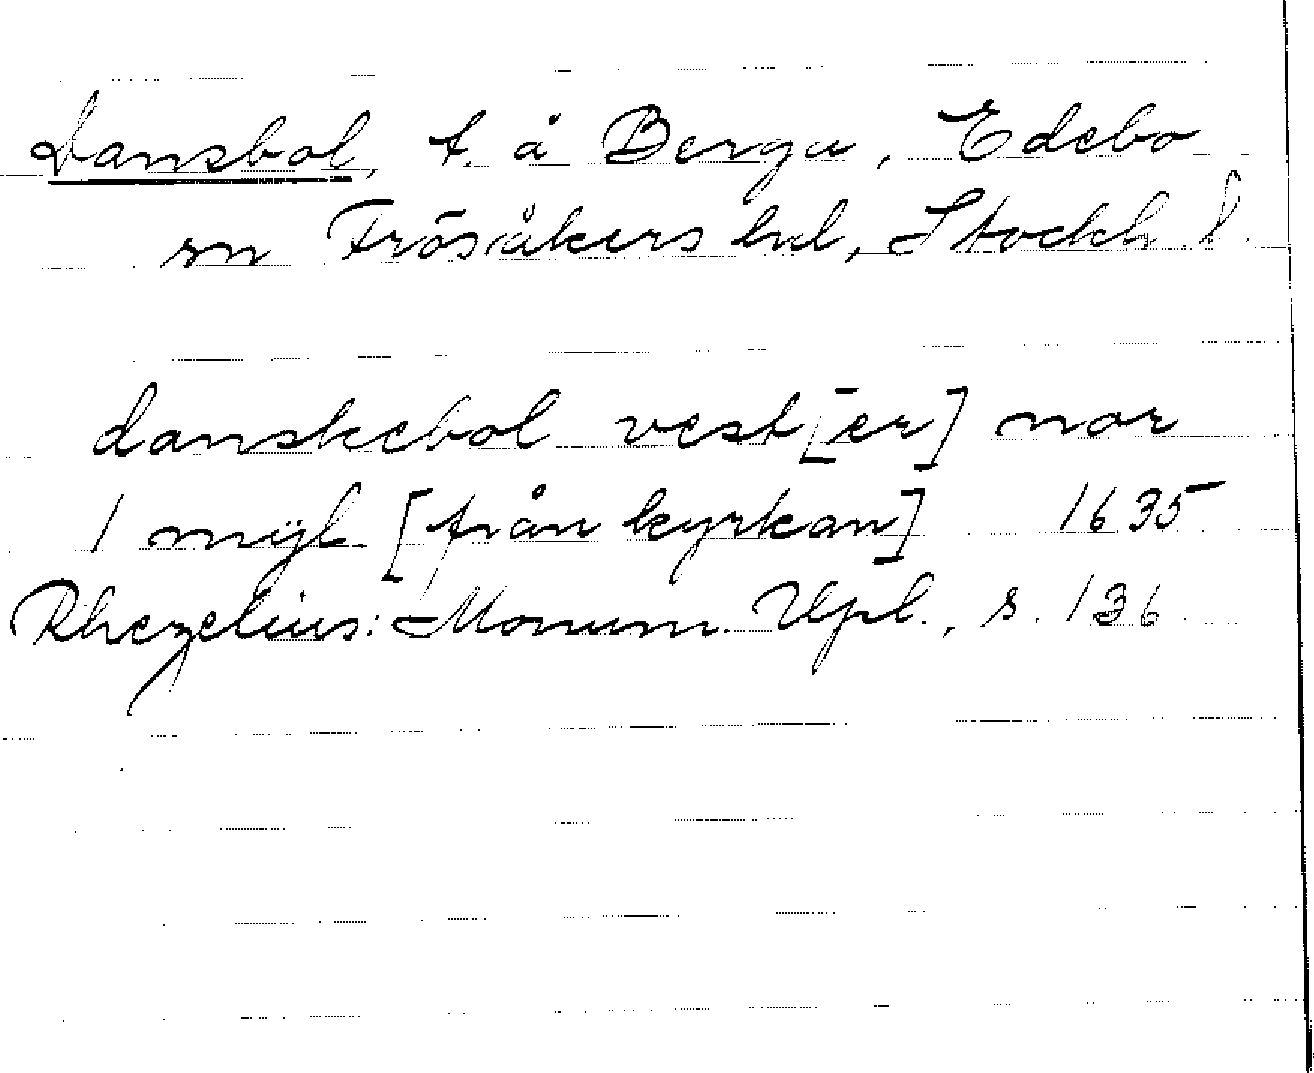 Dansbol, t. å Berga, Edebo
sn Frösåkers hd, Stockh. l.
danskebol vest[er] nor
1 mijl [från kyrkan] 1635
Rhezelius: Monum. Upl., s. 136